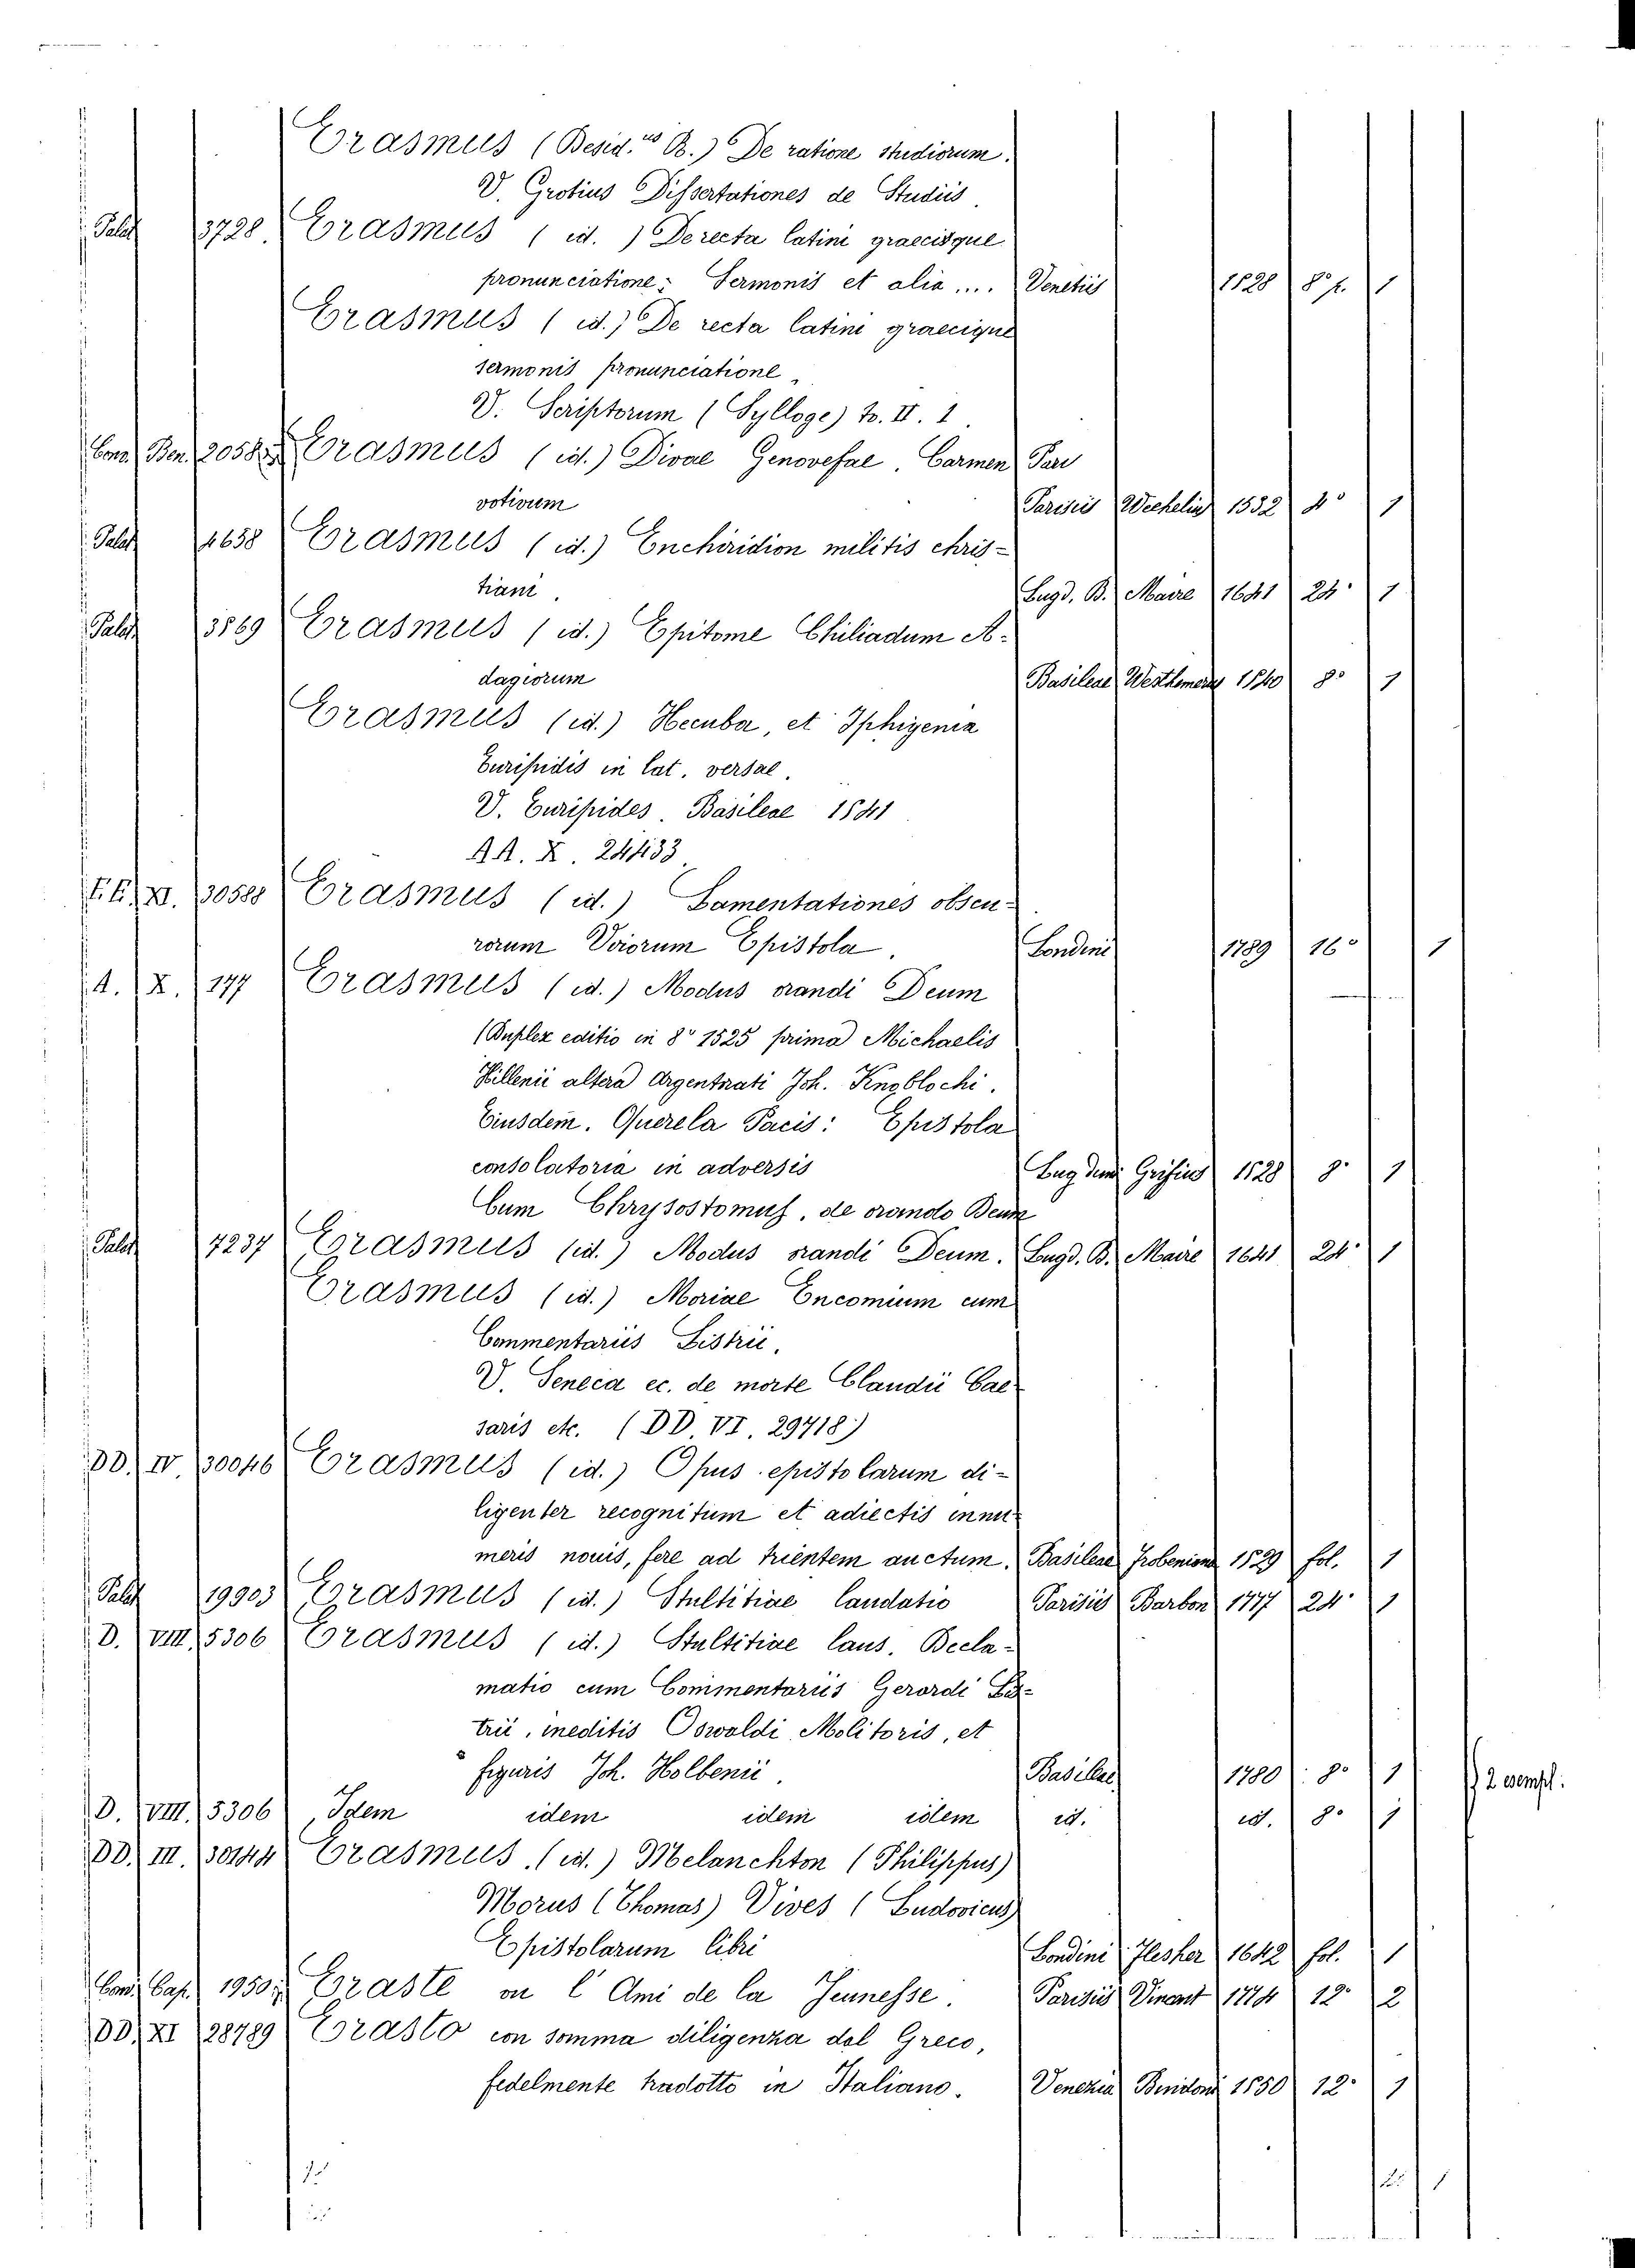 Erasmus (Besid.us R.) De ratione studiorum.
V. Grotius Dissertationes de Studiis.
Palat 3728 Erasmus (id.) De recta latini graecisque
pronunciatione: Sermonis et alia .... Venetiis 1528 8° p. 1
Erasmus (id.) De recta latini graecique
sermonis pronunciatione,
V. Scriptorum (Sylloge) to. II. 1.
Cons. Ben. 2058 Erasmus (id.) Divae Genovefae. Carmen Pari
votivum Parisiis Wechelius 1532 4° 1
Palat 4658 Erasmus (id.) Enchiridion militis chris-
tiani. Lugd. B. Maire 1641 24° 1
Palat 3569 Erasmus (id.) Epitome Chiliadum A-
dagiorum Basileae Westhemerus 1540 8° 1
Erasmus (id.) Hecuba, et Iphigenia
Euripidis in lat. versae.
V. Euripides. Basileae 1541
AA. X. 24433
E. E. XI. 30588 Erasmus (id.) Lamentationes obscu-
rorum Virorum Epistola. Londini 1789 16° 1
A. X. 177 Erasmus (id.) Modus orandi Deum
(Duplex editio in 8° 1525 prima Michaelis
Hillenii altera Argentorati Joh. Knoblochi.
Eiusdem. Querela Pacis: Epistola
consolatoria in adversis Lugduni Grifius 1528 8° 1
Cum Chrysostomus, de orando Deum
Palat 7237 Erasmus (id.) Modus orandi Deum. Lugd. B. Maire 1641 24° 1
Erasmus (id.) Moriae Encomium cum
Commentariis Listrii.
V. Seneca ec. de morte Claudii Cae-
saris etc. (DD VI. 29718)
DD. IV. 30046 Erasmus (id.) Opus epistolarum di-
ligenter recognitum et adiectis innu-
meris novis, fere ad trientem auctum. Basileae Frobeniana 1529 fol. 1
Palat 19903 Erasmus (id.) Stultitiae laudatio Parisiis Barbou 1777 24° 1
D. VIII. 5306 Erasmus (id.) Stultitiae laus. Decla-
matio cum Commentariis Gerardi Lis-
trii, ineditis Oswaldi Molitoris, et
figuris Joh. Holbenii. Basileae 1780 8° 1
2 esempl.
D. VIII. 5306 Idem idem idem idem id. id. 8° 1
DD. III. 30144 Erasmus (id.) Melanchton (Philippus)
Morus (Thomas) Vives (Ludovicus)
Epistolarum libri Londini Flesher 1642 fol. 1
Cons. Cap. 1950 Eraste ou l'Ami de la Jeunesse. Parisiis Vincent 1774 12° 2
DD. XI 28789 Erasto con somma diligenza dal Greco,
fedelmente tradotto in Italiano. Venezia Bindoni 1550 12° 1